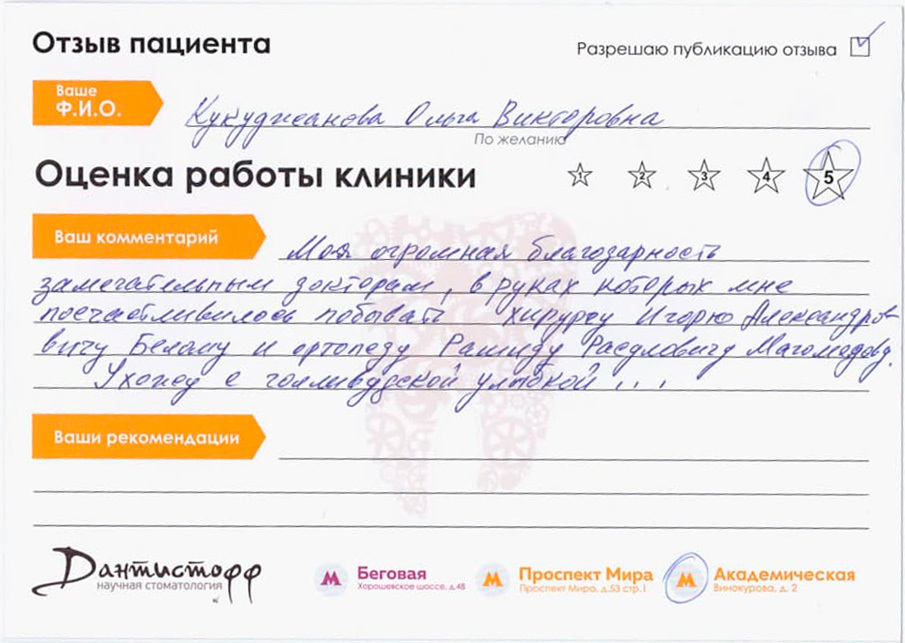 Отзыв пациента
Разрешаю публикацию отзыва
Ваше
Ф.И.О.
Кукуджанова Ольга Викторовна
По желанию
Оценка работы клиники
1 2 3 4 5
Ваш комментарий
Моя огромная благодарность
замечательным докторам, в руках которых мне
посчастливилось побывать хирургу Игорю Александров
вичу Белому и ортопеду Рашиду Расуловичу Магомедову.
Ухожу с голливудской улыбкой ...
Ваши рекомендации
Дантистофф
научная стоматология
М Беговая
Хорошевское шоссе, д.48
М Проспект Мира
Проспект Мира, д.53 стр.1
М Академическая
Винокурова, д. 2